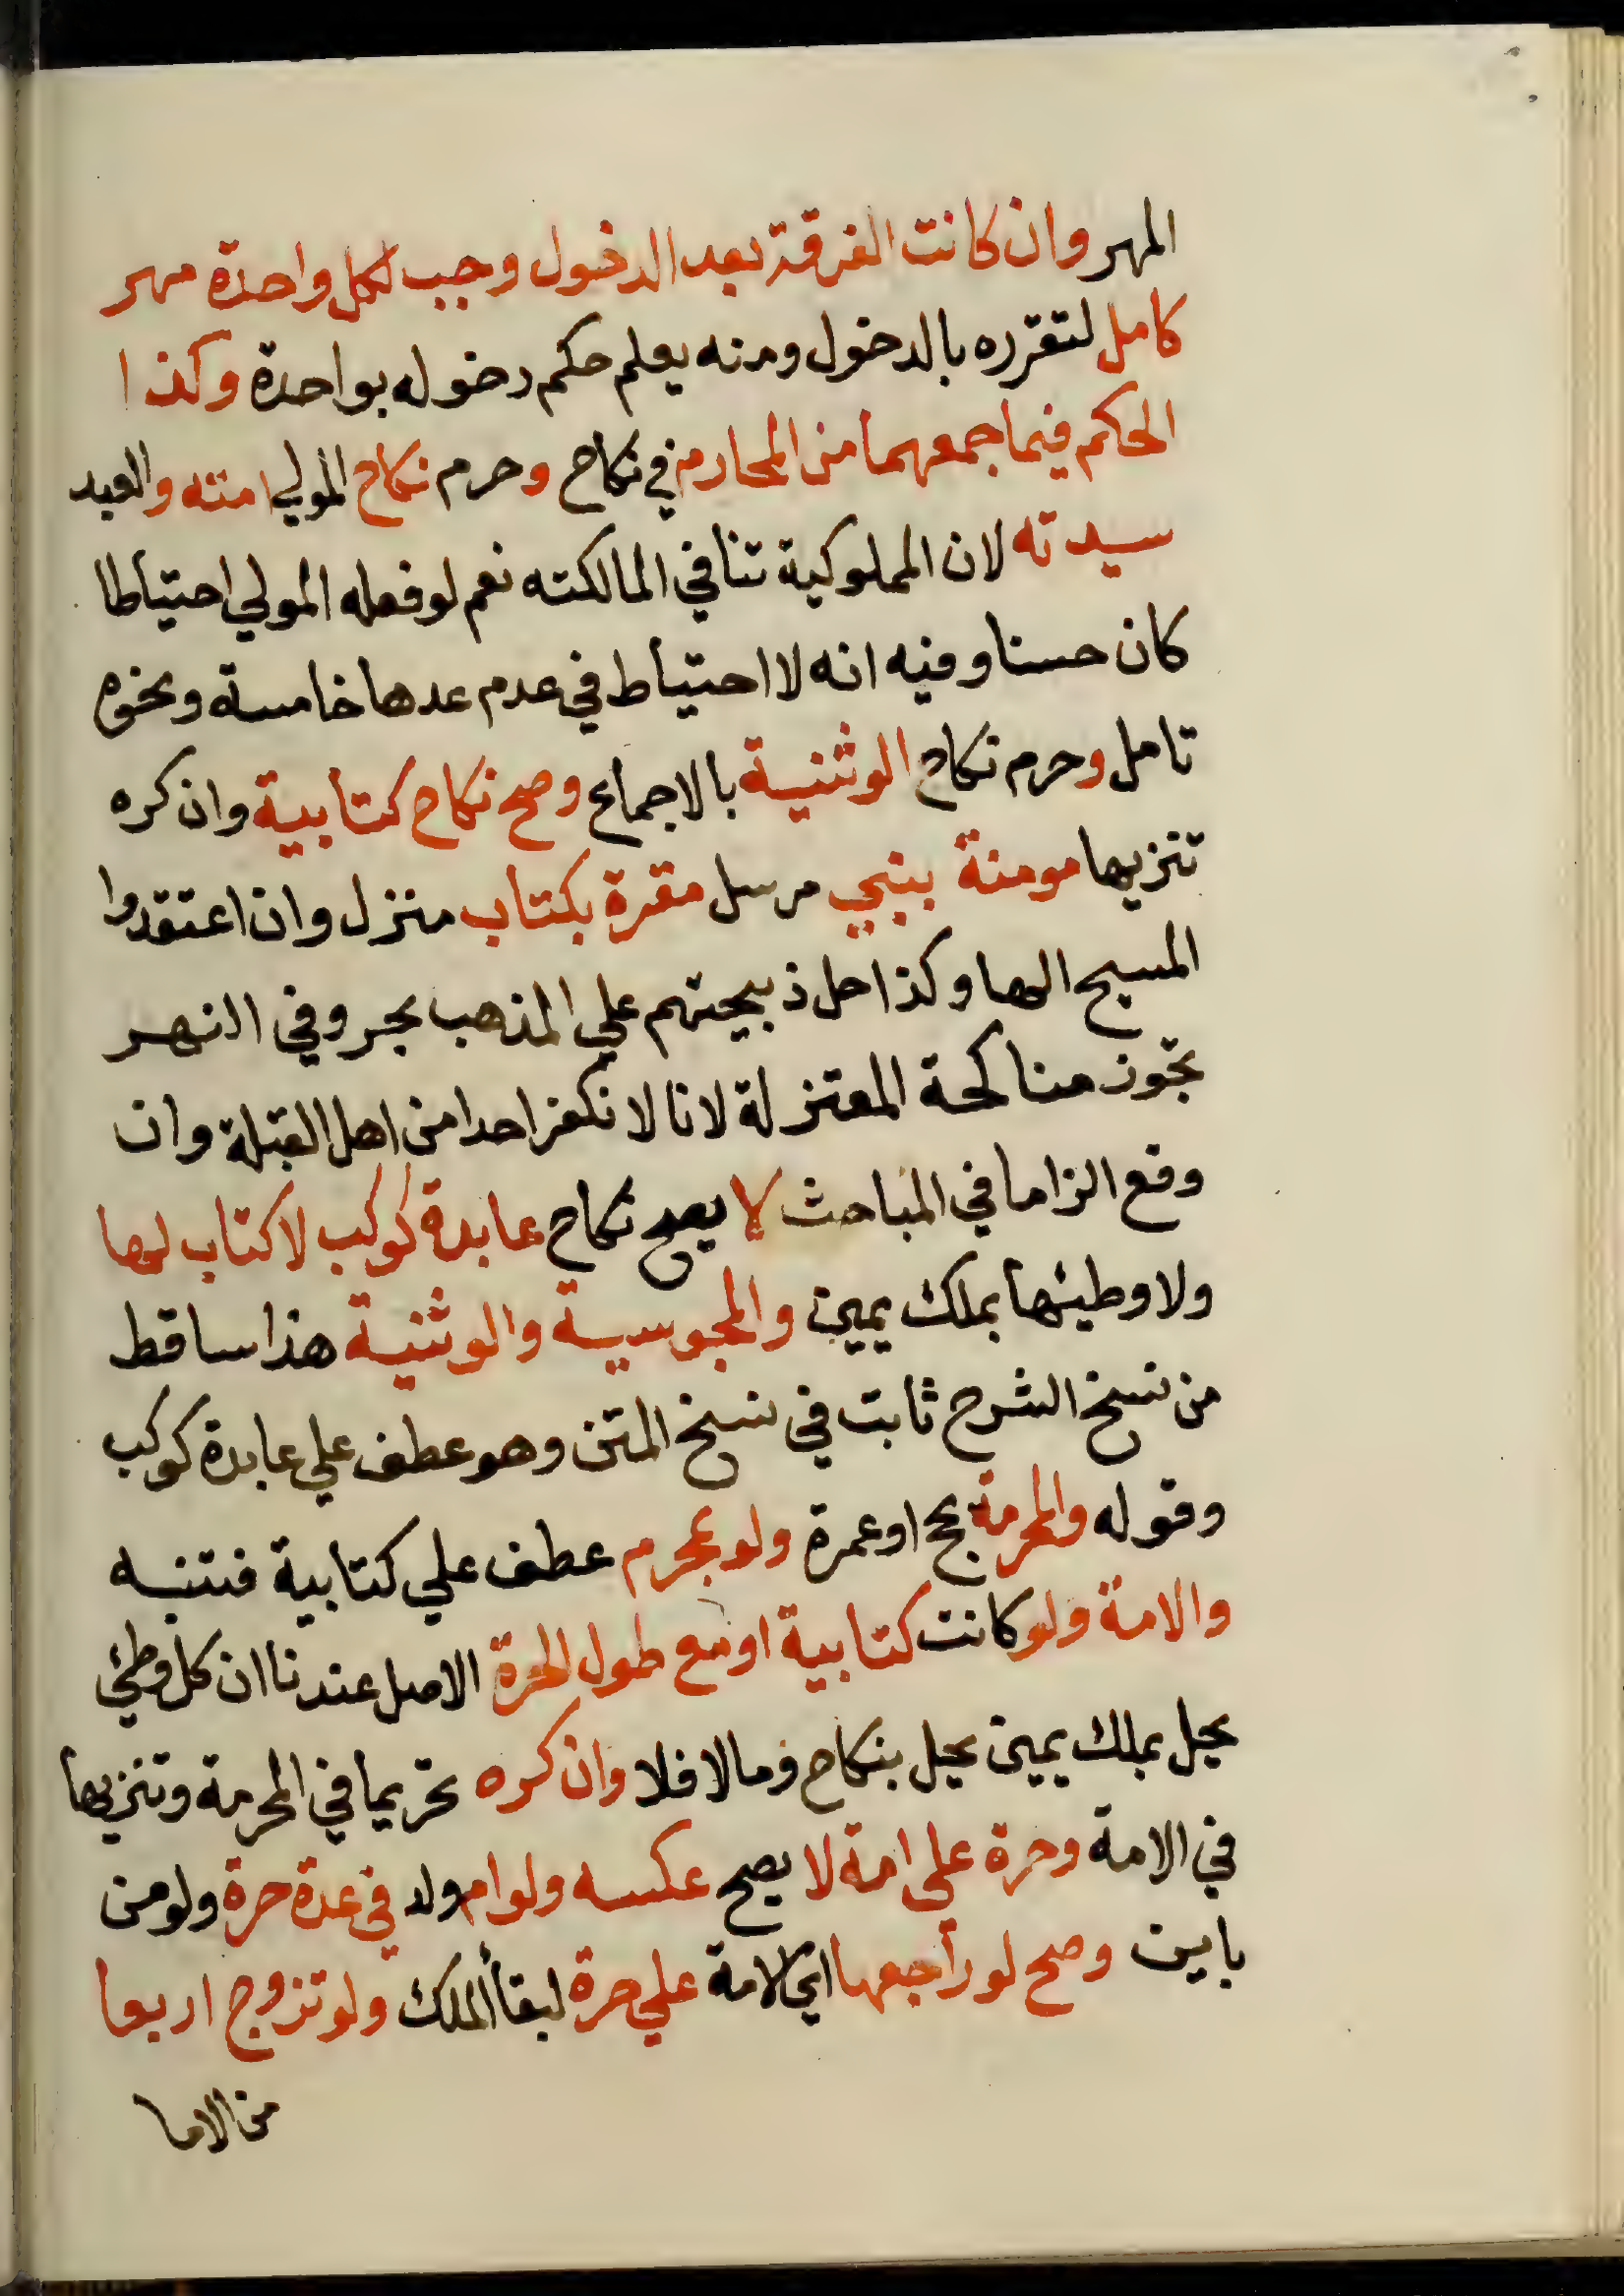 المهر وان كانت الفرقة بعد الدخول وجب لكل واحدة مهر
كامل لتقرره بالدخول ومنه يعلم حكم دخوله بواحدة وكذا
الحكم فيما جمعهما من المحارم في نكاح وحرم نكاح المولي امته والعبد
سيدته لان المملوكية تنافي المالكته نعم لو فعله المولي احتياطا
كان حسنا وفيه انه لا احتياط في عدم عدها خامسة ونحوه
تامل وحرم نكاح الوثنية بالاجماع وصح نكاح كتابية وان كره
تنزيها مومنة بنبي مرسل مقرة بكتاب منزل وان اعتقدوا
المسيح الها وكذا حل ذبيحتهم علي المذهب بحر وفي النهر
تجوز مناكحة المعتزلة لانا لا نكفر احدا من اهل القبلة وان
وقع الزاما في المباحث لا يصح نكاح عابدة كوكب لا كتاب لها
ولا وطيئها بملك يمين والمجوسية والوثنية هذا ساقط
من نسخ الشرح ثابت في نسخ المتن وهو عطف علي عابدة كوكب
وقوله والمحرمة بحج او عمرة ولو بمحرم عطف علي كتابية فتنبه
والامة ولو كانت كتابية او مع طول الحرة الاصل عندنا ان كل وطئ
يحل بملك يمين يحل بنكاح وما لا فلا وان كره تحريما في المحرمة وتنزيها
في الامة وحرة علي امة لا يصح عكسه ولو ام ولد في عدة حرة ولو من
باين وصح لو راجعها اي الامة علي حرة لبقأ الملك ولو تزوج اربعا
من الاما